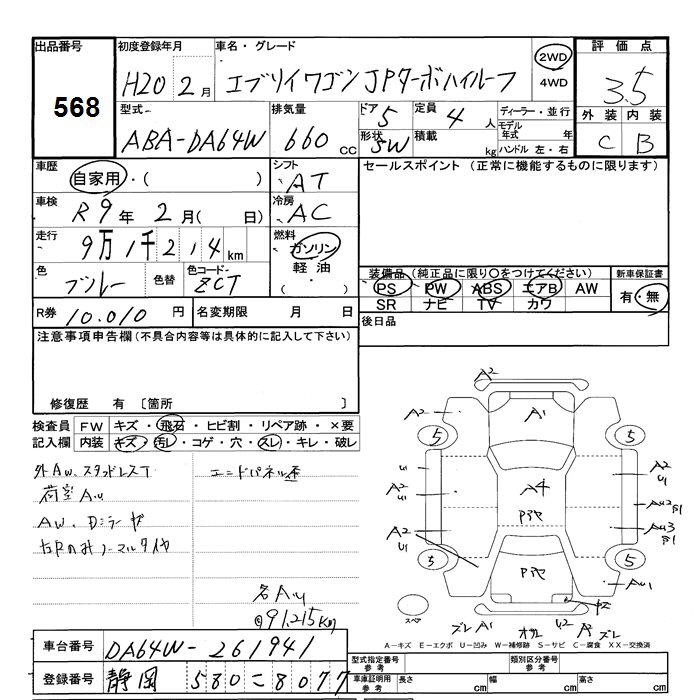 出品番号
568
初度登録年月
H20 2月
車名・グレード
エブリイワゴン JPターボハイルーフ
2WD
4WD
評価点
3.5
外装 内装
C B
型式
ABA-DA64W
排気量
660 cc
ドア
5
定員
4 人
形状
5W
積載
kg
ディーラー・並行
モデル年式 年
ハンドル 左・右
車歴
自家用・( )
シフト
AT
セールスポイント (正常に機能するものに限ります)
車検
R9年 2月( 日)
冷房
AC
走行
9万1千214 km
燃料
ガソリン
軽油
( ・ )
色
ブルー
色替
色コードー
ZCT
装備品(純正品に限り〇をつけてください)
PS PW ABS エアB AW
SR ナビ TV カワ
新車保証書
有・無
R券 10.010 円
名変期限 月 日
後日品
注意事項申告欄(不具合内容等は具体的に記入して下さい)
修復歴 有 〔箇所 〕
検査員記入欄
FW キズ・飛石・ヒビ割・リペア跡・×要
内装 キズ・汚レ・コゲ・穴・スレ・キレ・破レ
外AW、スタッドレスT
荷室AU
AW、Dミラーサビ
右Pのみノーマルタイヤ
エンドパネル歪
名AU
@91.215km
A2
A1
5 5
U1
A2
U1
A4
Pヌケ
A2
U1
AU2
AU3
A2
U1
5 5
Pヌケ
AU1
スペア
ズレ A1 U2 A2 ズレ
A-キズ E-エクボ U-凹み W-補修跡 S-サビ C-腐食 XX-交換済
車台番号
DA64W-261941
登録番号
静岡 580 に 8077
型式指定番号
参考
類別区分番号
参考
車庫証明用
参考
長さ cm
幅 cm
高さ cm